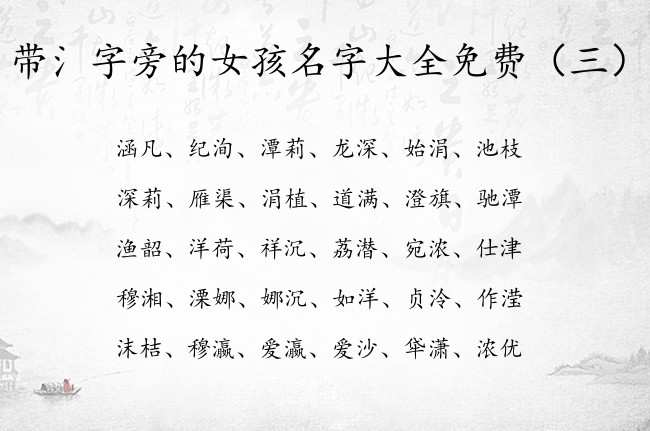 带氵字旁的女孩名字大全免费（三）
涵凡、纪洵、潭莉、龙深、始涓、池枝
深莉、雁渠、涓植、道满、澄旗、驰潭
渔韶、洋荷、祥沉、荔潜、宛浓、仕津
穆湘、溧娜、娜沉、如洋、贞泠、作滢
沫桔、穆瀛、爱瀛、爱沙、华潇、浓优